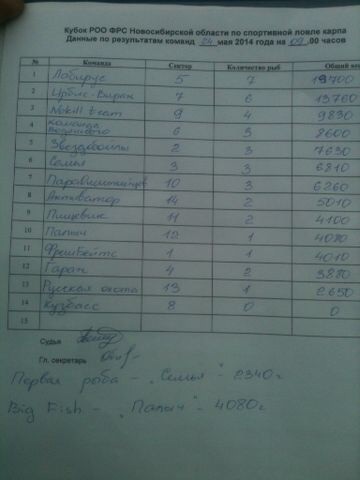 Кубок РОО ФРС Новосибирской области по спортивной ловле карпа
Данные по результатам команд 24 мая 2014 года на 09.00 часов
№ Команда Сектор Количество рыб Общий
1 Лабирус 5 7 19700
2 Ирбис-Вираж 7 6 13760
3 Nokill team 9 4 9830
4 Команда Водяного 6 3 8600
5 Звездобойцы 2 3 7630
6 Семья 3 3 6810
7 10 3 6260
8 Активатор 14 2 5010
9 Пищевик 11 2 4100
10 Папыч 12 1 4080
11 ФришБейтс 1 1 4010
12 Гаран 4 2 3880
13 Русская охота 13 1 2650
14 Кузбасс 8 0 0
15
Судья
Гл. секретарь
Первая рыба - "Семья" - 2340г
Big Fish - "Папыч" - 4080г